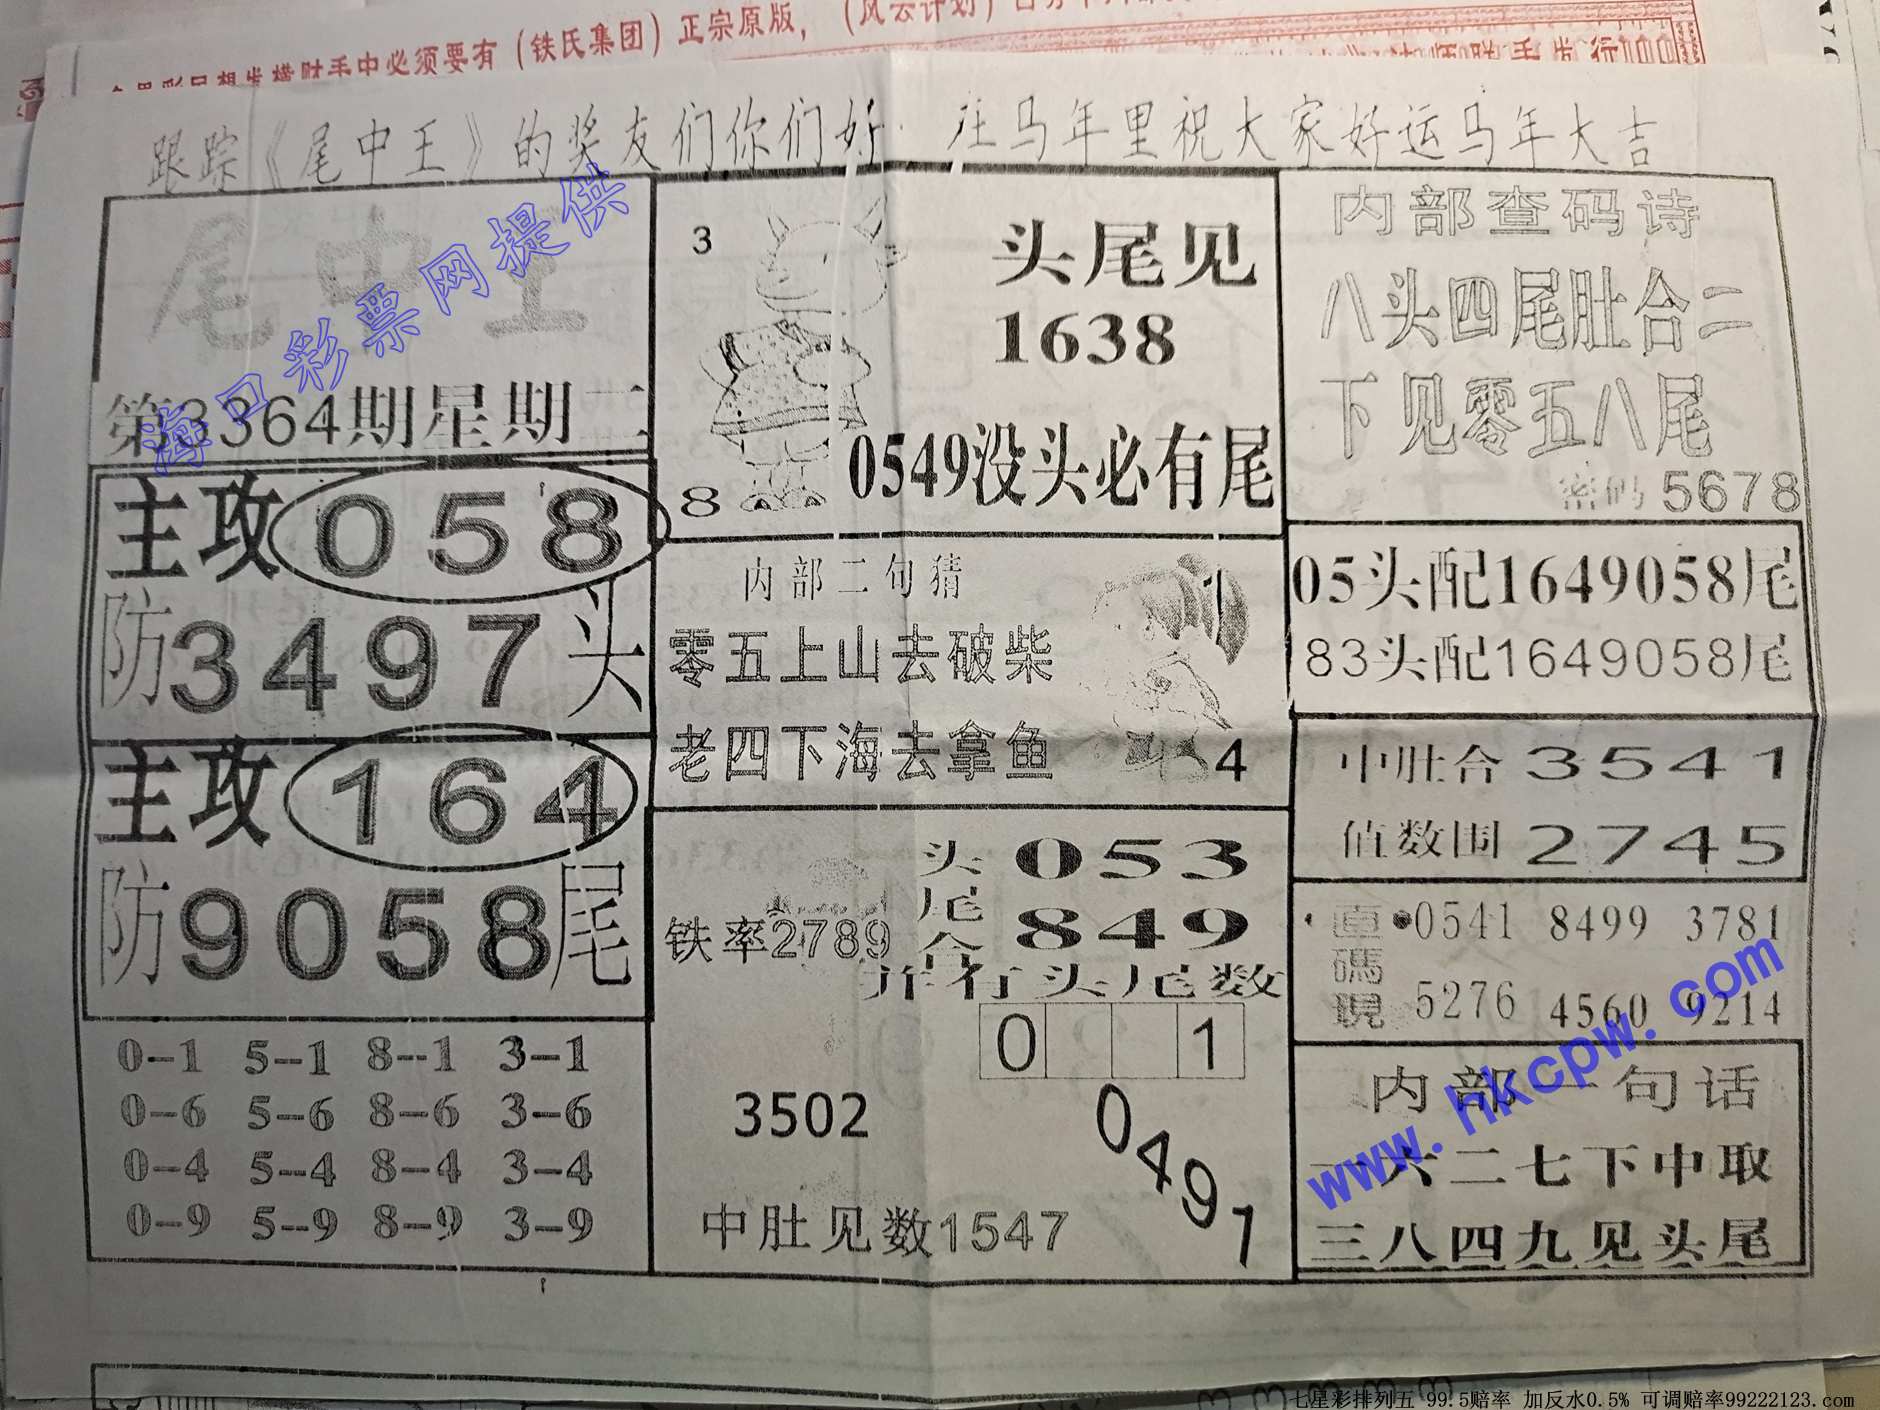 必须要有（铁氏集团）正宗原版，（风云计划）
跟踪《尾中王》的奖友们你们好 在马年里祝大家好运马年大吉
尾中王
第3364期星期二
海口彩票网提供
主攻058
防3497头
主攻164
防9058尾
0--1 5--1 8--1 3--1
0--6 5--6 8--6 3--6
0--4 5--4 8--4 3--4
0--9 5--9 8--9 3--9
3
头尾见
1638
0549没头必有尾
8
内部二句猜
1
零五上山去破柴
老四下海去拿鱼
4
头尾合
053
849
铁率2789
并行头尾数
0 1
3502
0491
中肚见数1547
内部查码诗
八头四尾肚合二
下见零五八尾
密码5678
05头配1649058尾
83头配1649058尾
中肚合3541
值数围2745
直碼現
0541 8499 3781
5276 4560 9214
内部一句话
一六二七下中取
三八四九见头尾
www.hkcpw.com
七星彩排列五 99.5赔率 加反水0.5% 可调赔率99222123.com